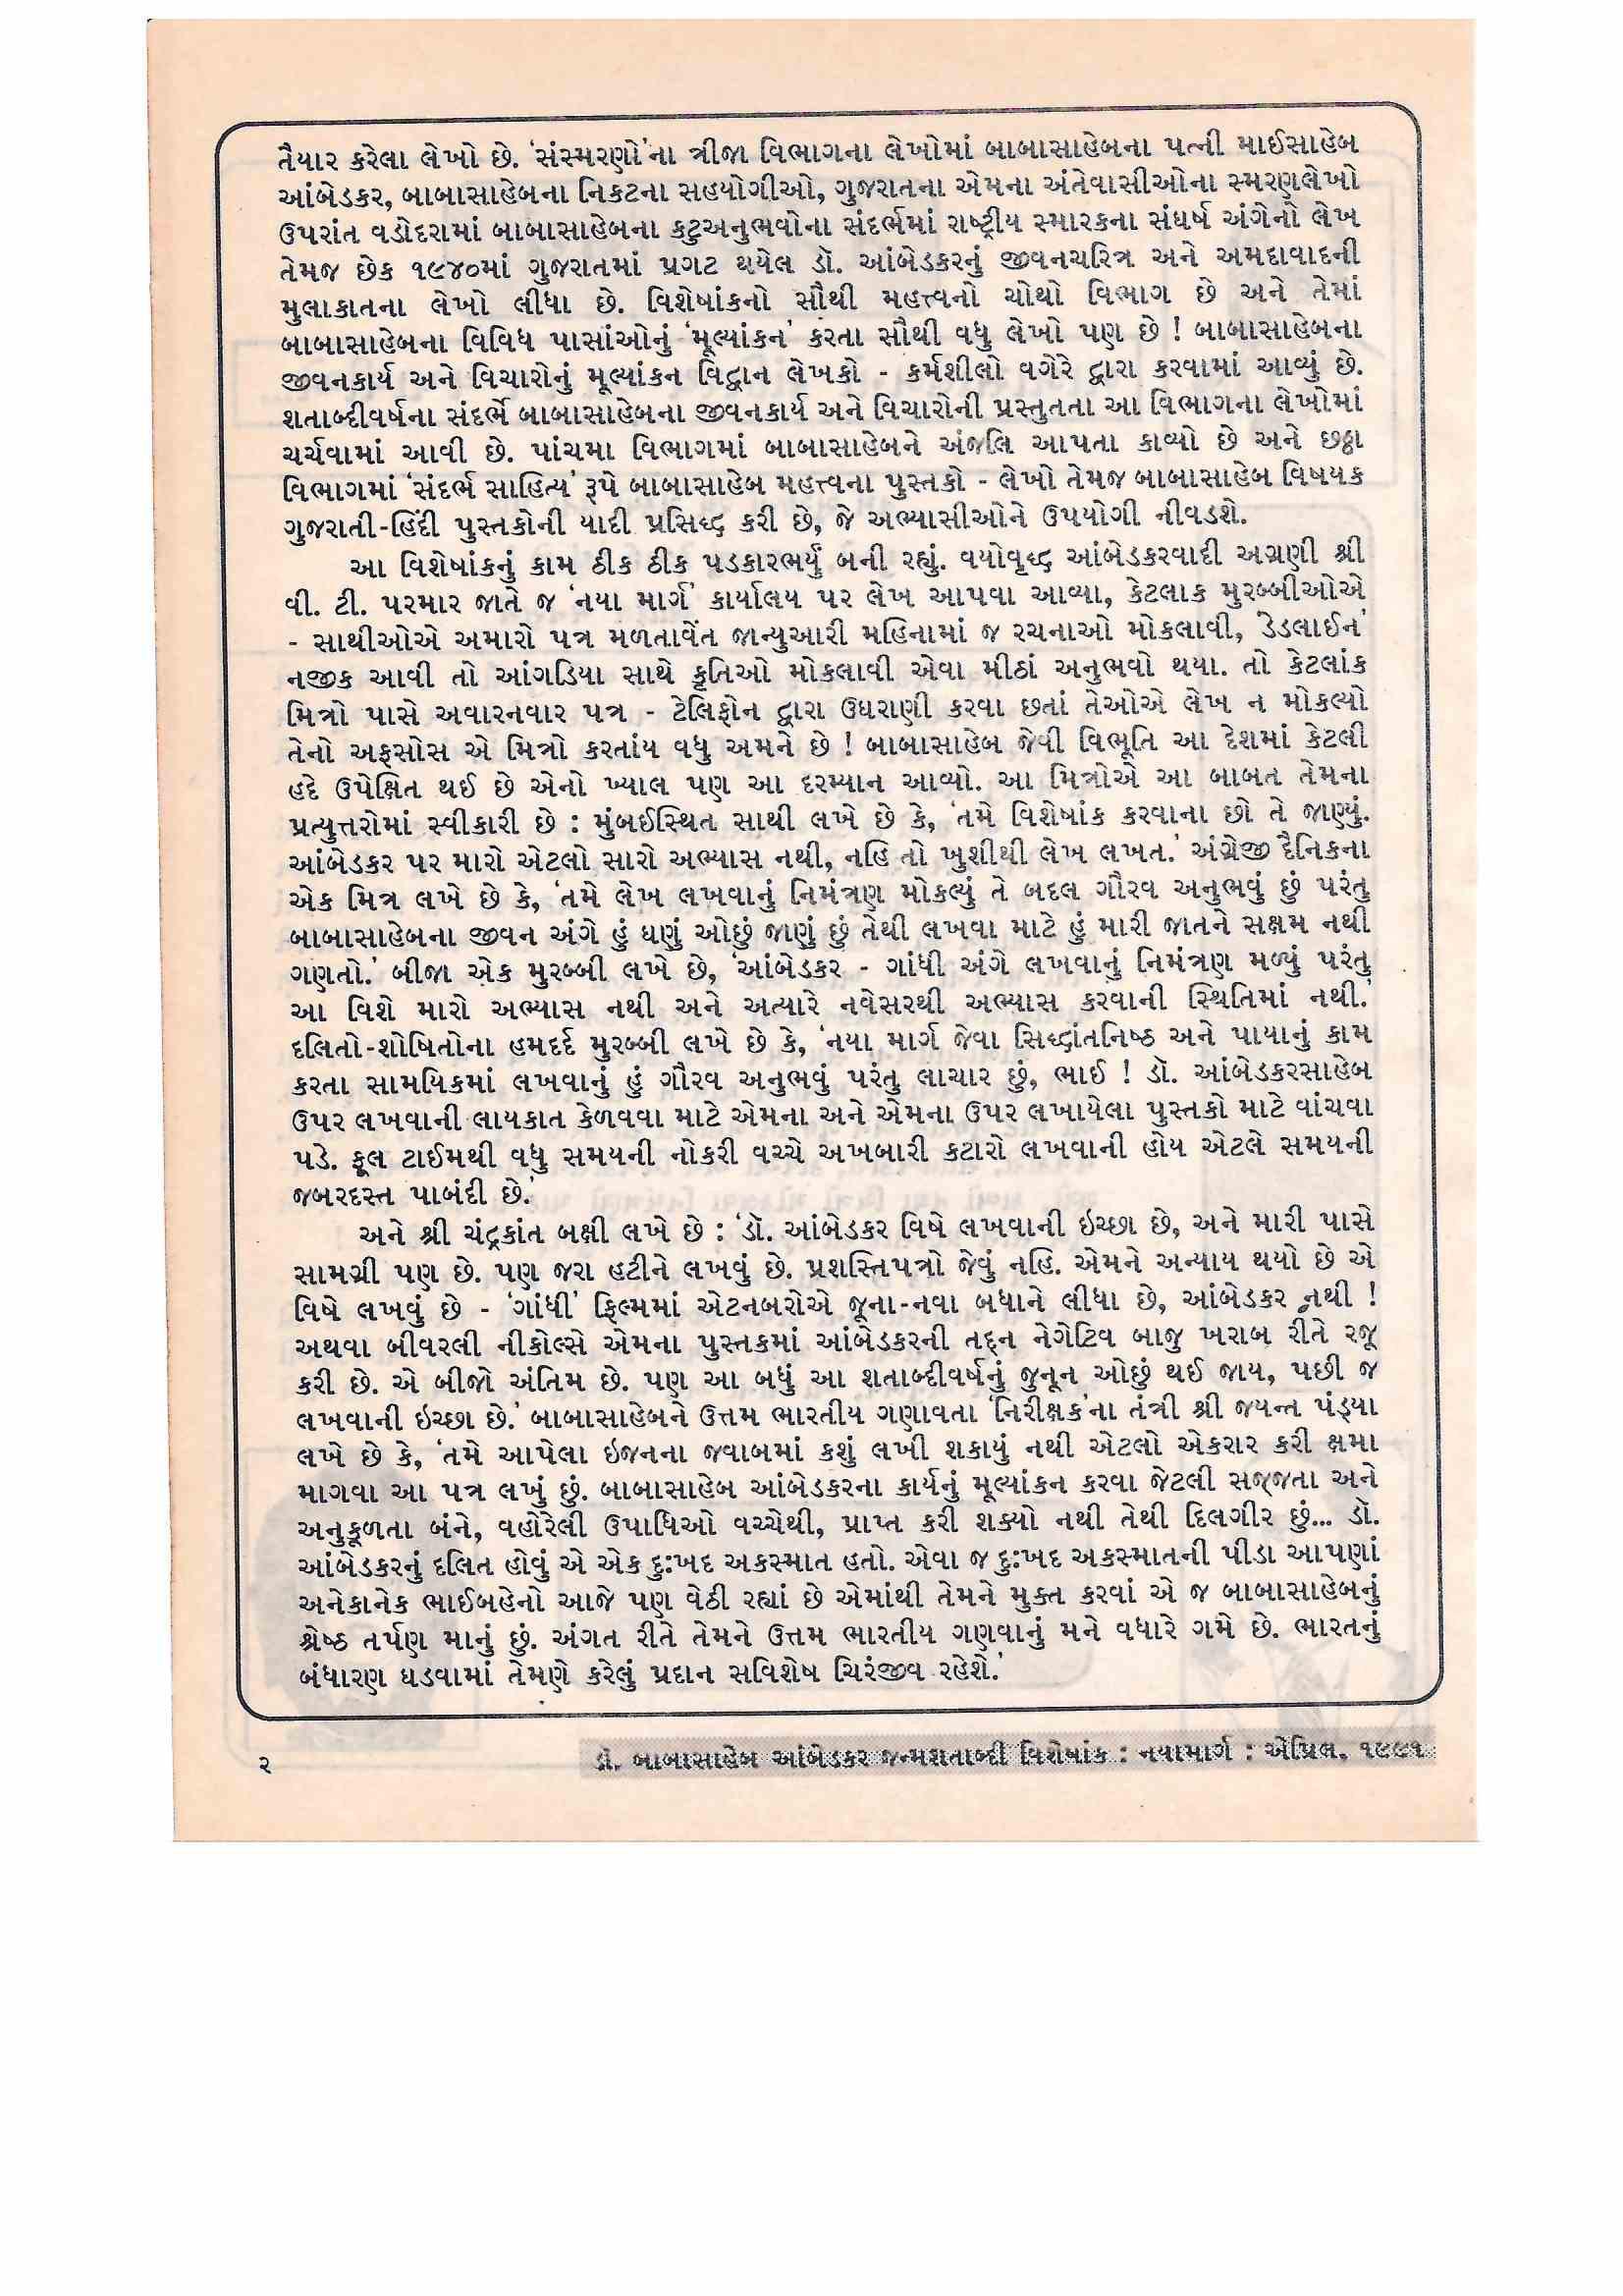 તૈયાર કરેલા લેખો છે. ‘સંસ્મરણો’ના ત્રીજા વિભાગના લેખોમાં બાબાસાહેબના પત્ની માઈસાહેબ
આંબેડકર, બાબાસાહેબના નિકટના સહયોગીઓ, ગુજરાતના એમના અંતેવાસીઓના સ્મરણલેખો
ઉપરાંત વડોદરામાં બાબાસાહેબના કટુઅનુભવોના સંદર્ભમાં રાષ્ટ્રીય સ્મારકના સંઘર્ષ અંગેનો લેખ
તેમજ છેક ૧૯૪૦માં ગુજરાતમાં પ્રગટ થયેલ ડૉ. આંબેડકરનું જીવનચરિત્ર અને અમદાવાદની
મુલાકાતના લેખો લીધા છે. વિશેષાંકનો સૌથી મહત્ત્વનો ચોથો વિભાગ છે અને તેમાં
બાબાસાહેબના વિવિધ પાસાંઓનું ‘મૂલ્યાંકન’ કરતા સૌથી વધુ લેખો પણ છે ! બાબાસાહેબના
જીવનકાર્ય અને વિચારોનું મૂલ્યાંકન વિદ્વાન લેખકો - કર્મશીલો વગેરે દ્વારા કરવામાં આવ્યું છે.
શતાબ્દીવર્ષના સંદર્ભે બાબાસાહેબના જીવનકાર્ય અને વિચારોની પ્રસ્તુતતા આ વિભાગના લેખોમાં
ચર્ચવામાં આવી છે. પાંચમા વિભાગમાં બાબાસાહેબને અંજલિ આપતા કાવ્યો છે અને છઠ્ઠા
વિભાગમાં ‘સંદર્ભ સાહિત્ય’ રૂપે બાબાસાહેબ મહત્ત્વના પુસ્તકો - લેખો તેમજ બાબાસાહેબ વિષયક
ગુજરાતી-હિંદી પુસ્તકોની યાદી પ્રસિદ્ધ કરી છે, જે અભ્યાસીઓને ઉપયોગી નીવડશે.
આ વિશેષાંકનું કામ ઠીક ઠીક પડકારભર્યું બની રહ્યું. વયોવૃદ્ધ આંબેડકરવાદી અગ્રણી શ્રી
વી. ટી. પરમાર જાતે જ ‘નયા માર્ગ’ કાર્યાલય પર લેખ આપવા આવ્યા, કેટલાક મુરબ્બીઓએ
- સાથીઓએ અમારો પત્ર મળતાવેંત જાન્યુઆરી મહિનામાં જ રચનાઓ મોકલાવી, ‘ડેડલાઈન’
નજીક આવી તો આંગડિયા સાથે કૃતિઓ મોકલાવી એવા મીઠાં અનુભવો થયા. તો કેટલાંક
મિત્રો પાસે અવારનવાર પત્ર - ટેલિફોન દ્વારા ઉઘરાણી કરવા છતાં તેઓએ લેખ ન મોકલ્યો
તેનો અફસોસ એ મિત્રો કરતાંય વધુ અમને છે ! બાબાસાહેબ જેવી વિભૂતિ આ દેશમાં કેટલી
હદે ઉપેક્ષિત થઈ છે એનો ખ્યાલ પણ આ દરમ્યાન આવ્યો. આ મિત્રોએ આ બાબત તેમના
પ્રત્યુત્તરોમાં સ્વીકારી છે : મુંબઈસ્થિત સાથી લખે છે કે, ‘તમે વિશેષાંક કરવાના છો તે જાણ્યું.
આંબેડકર પર મારો એટલો સારો અભ્યાસ નથી, નહિ તો ખુશીથી લેખ લખત.’ અંગ્રેજી દૈનિકના
એક મિત્ર લખે છે કે, ‘તમે લેખ લખવાનું નિમંત્રણ મોકલ્યું તે બદલ ગૌરવ અનુભવું છું પરંતુ
બાબાસાહેબના જીવન અંગે હું ઘણું ઓછું જાણું છું તેથી લખવા માટે હું મારી જાતને સક્ષમ નથી
ગણતો.’ બીજા એક મુરબ્બી લખે છે, ‘આંબેડકર - ગાંધી અંગે લખવાનું નિમંત્રણ મળ્યું પરંતુ
આ વિશે મારો અભ્યાસ નથી અને અત્યારે નવેસરથી અભ્યાસ કરવાની સ્થિતિમાં નથી.’
દલિતો-શોષિતોના હમદર્દ મુરબ્બી લખે છે કે, ‘નયા માર્ગ જેવા સિદ્ધાંતનિષ્ઠ અને પાયાનું કામ
કરતા સામયિકમાં લખવાનું હું ગૌરવ અનુભવું પરંતુ લાચાર છું, ભાઈ ! ડૉ. આંબેડકરસાહેબ
ઉપર લખવાની લાયકાત કેળવવા માટે એમના અને એમના ઉપર લખાયેલા પુસ્તકો માટે વાંચવા
પડે. ફૂલ ટાઈમથી વધુ સમયની નોકરી વચ્ચે અખબારી કટારો લખવાની હોય એટલે સમયની
જબરદસ્ત પાબંદી છે.’
અને શ્રી ચંદ્રકાંત બક્ષી લખે છે : ‘ડૉ. આંબેડકર વિષે લખવાની ઇચ્છા છે, અને મારી પાસે
સામગ્રી પણ છે. પણ જરા હટીને લખવું છે. પ્રશસ્તિપત્રો જેવું નહિ. એમને અન્યાય થયો છે એ
વિષે લખવું છે - ‘ગાંધી’ ફિલ્મમાં એટનબરોએ જૂના-નવા બધાને લીધા છે, આંબેડકર નથી !
અથવા બીવરલી નીકોલ્સે એમના પુસ્તકમાં આંબેડકરની તદ્દન નેગેટિવ બાજુ ખરાબ રીતે રજૂ
કરી છે. એ બીજો અંતિમ છે. પણ આ બધું આ શતાબ્દીવર્ષનું જુનૂન ઓછું થઈ જાય, પછી જ
લખવાની ઇચ્છા છે.’ બાબાસાહેબને ઉત્તમ ભારતીય ગણાવતા ‘નિરીક્ષક’ના તંત્રી શ્રી જયન્ત પંડ્યા
લખે છે કે, ‘તમે આપેલા ઇજનના જવાબમાં કશું લખી શકાયું નથી એટલો એકરાર કરી ક્ષમા
માગવા આ પત્ર લખું છું. બાબાસાહેબ આંબેડકરના કાર્યનું મૂલ્યાંકન કરવા જેટલી સજ્જતા અને
અનુકૂળતા બંને, વહોરેલી ઉપાધિઓ વચ્ચેથી, પ્રાપ્ત કરી શક્યો નથી તેથી દિલગીર છું... ડૉ.
આંબેડકરનું દલિત હોવું એ એક દુ:ખદ અકસ્માત હતો. એવા જ દુ:ખદ અકસ્માતની પીડા આપણાં
અનેકાનેક ભાઈબહેનો આજે પણ વેઠી રહ્યાં છે એમાંથી તેમને મુક્ત કરવાં એ જ બાબાસાહેબનું
શ્રેષ્ઠ તર્પણ માનું છું. અંગત રીતે તેમને ઉત્તમ ભારતીય ગણવાનું મને વધારે ગમે છે. ભારતનું
બંધારણ ઘડવામાં તેમણે કરેલું પ્રદાન સવિશેષ ચિરંજીવ રહેશે.’
૨ ડૉ. બાબાસાહેબ આંબેડકર જન્મશતાબ્દી વિશેષાંક : નયામાર્ગ : એપ્રિલ, ૧૯૯૧